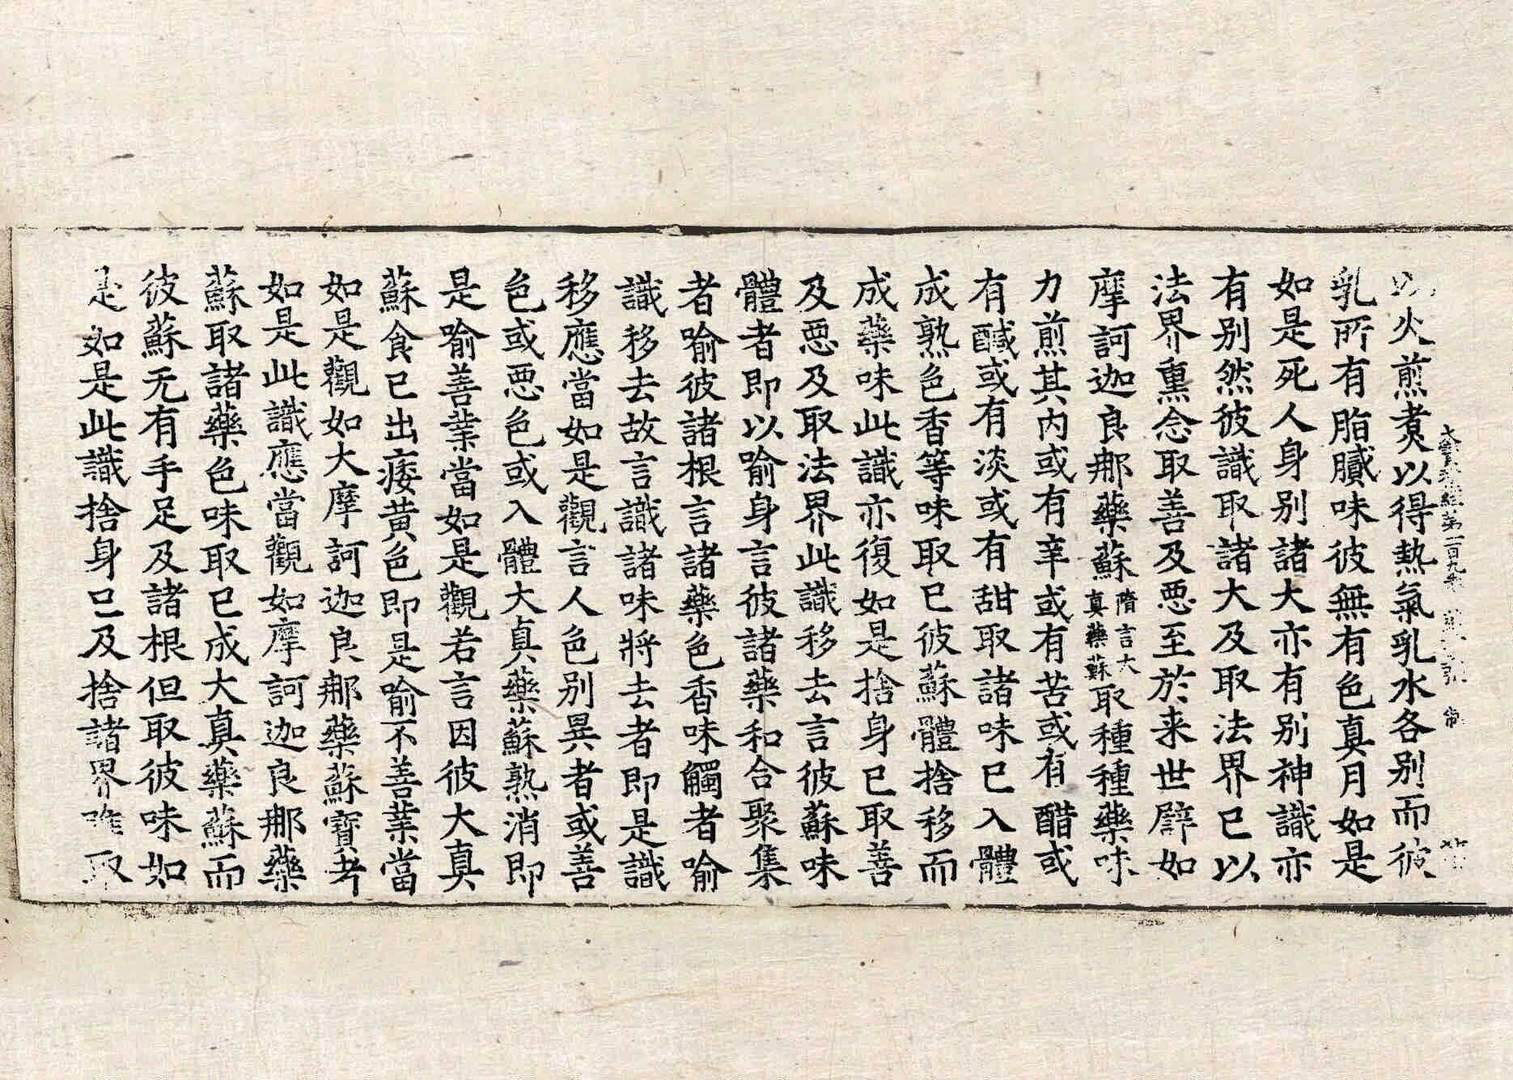 大寶積經第一百九卷
以火煎煑以得熱氣乳水各別而彼
乳所有脂膩味彼無有色真月如是
如是死人身別諸大亦有別神識亦
有別然彼識取諸大及取法界已以
法界熏念取善及惡至於来世譬如
摩訶迦良那藥蘇隋言大真藥蘇取種種藥味
力煎其内或有辛或有苦或有醋或
有醎或有淡或有甜取諸味已入體
成熟色香等味取已彼蘇體捨移而
成藥味此識亦復如是捨身已取善
及惡及取法界此識移去言彼蘇味
體者即以喻身言彼諸藥和合聚集
者喻彼諸根言諸藥色香味觸者喻
識移去故言識諸味將去者即是識
移應當如是觀言人色別異者或善
色或惡色或入體大真藥蘇熟消即
是喻善業當如是觀若言因彼大真
蘇食已出痿黄色即是喻不善業當
如是觀如大摩訶迦良那藥蘇寶者
如是此識應當觀如摩訶迦良那藥
蘇取諸藥色味取已成大真藥蘇而
彼蘇无有手足及諸根但取彼味如
是如是此識捨身已及捨諸界唯取